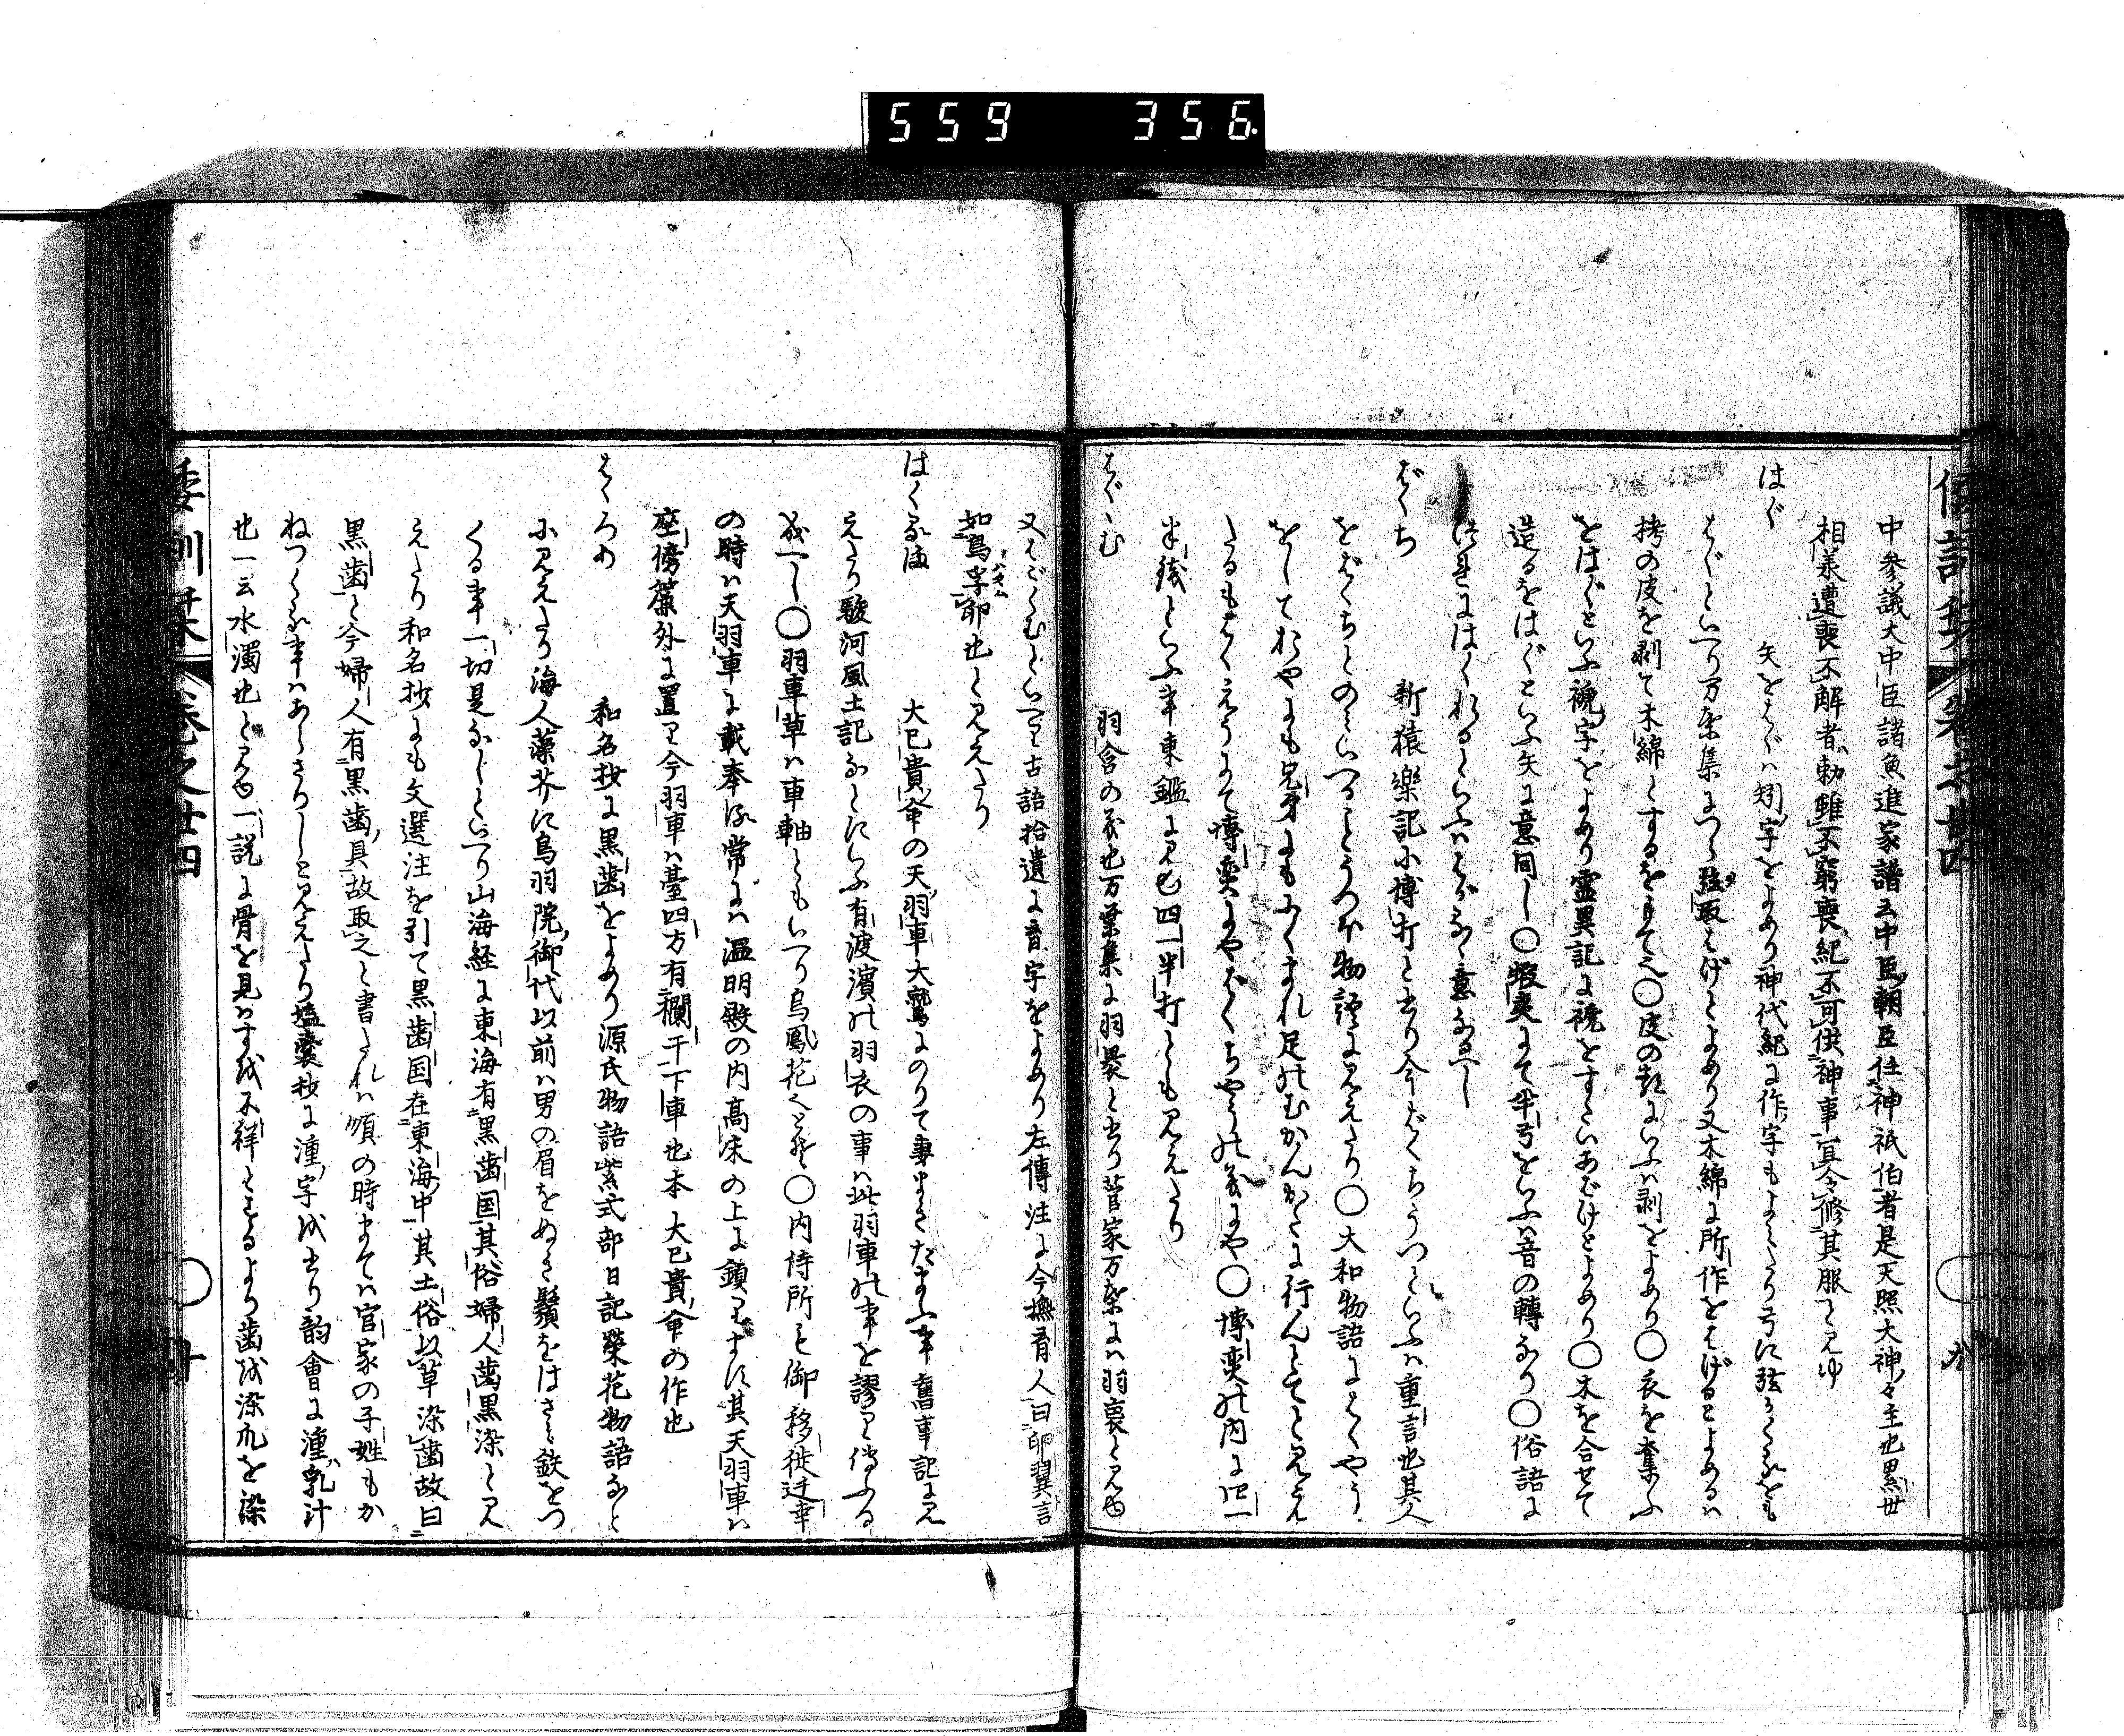 559 356
中参議大中臣諸魚進家譜云中臣朝臣任神祇伯者是天照大神々主也累世
相承遭喪不解者勅雖不窮喪紀不可供神事宜令修其服と見ゆ
はぐ 矢をはぐハ矧字をよめり神代紀に作字もよめり弓に弦かくるをも
はぐといへり万葉集につら弦取はげとよめり又木綿に所作をはげるとよめるハ
拷の皮を剥て木綿とするをもて也〇皮の類にいふハ剥をよめり〇衣を奪ふ
をはぐといふ褫字をよめり霊異記に褫をすといあばけとよめり〇木を合せて
造るをはぐといふ矢に意同し〇蝦夷にて半弓をいふハ音の轉なり〇俗語に
はくれるといふハ意なるへし
ばくち 新猿樂記小博打と書り今ばくちうつといふハ重言也其人
をばくちとのミいへることうつほ物語に見えたり〇大和物語にばくやう
をしておやにも兄弟にもにくまれ足のむかんかたに行んとてと見え
たるもばくえうにて博奕にやばくちやうの義にや〇博奕の内に四一
半銭といふ事東鑑に見ゆ四一半打とも見えたり
はぐゝむ 羽含の義也万葉集に羽裹と書り菅家万葉にハ羽裹と見ゆ
又はごくむといへり古語拾遺に育字をよめり左傳注に今撫育人曰卵翼言
如鳥孚卵也と見えたり
はくるま 大己貴命の天羽車大鷲にのりて妻まきたまふ事舊事記に見
えたり駿河風土記なとにいふ有渡濱の羽衣の事ハ此羽車の事を謬り傳ふる
成へし〇羽車草ハ車軸ともいへり烏鳳花也とぞ〇内侍所を御移徙迁幸
の時ハ天羽車に載奉る常にハ温明殿の内高床の上に鎮ります其天羽車ハ
座傍簾外に置り今羽車ハ臺四方有欄干下車也本大己貴命の作也
はくろめ 和名抄に黒歯をよめり源氏物語紫式部日記榮花物語なと
に見えたり海人藻芥に鳥羽院御代以前ハ男の眉をぬき鬚をはさミ鉄をつ
くる事一切是なしといへり山海経に東海有黒歯国其俗婦人歯黒染と見
えたり和名抄にも文選注を引て黒歯国在東海中其土俗以草染歯故曰
黒歯と今婦人有黒歯具故取之と書されハ順の時まてハ官家の子姓もか
ねつくる事ハあらさりしと見えたり壒嚢抄に湩字を書り韵會に湩乳汁
也一云水濁也と見ゆ一説に骨を見ハすを不祥とするより歯を染爪を染
倭訓栞 巻之廿四